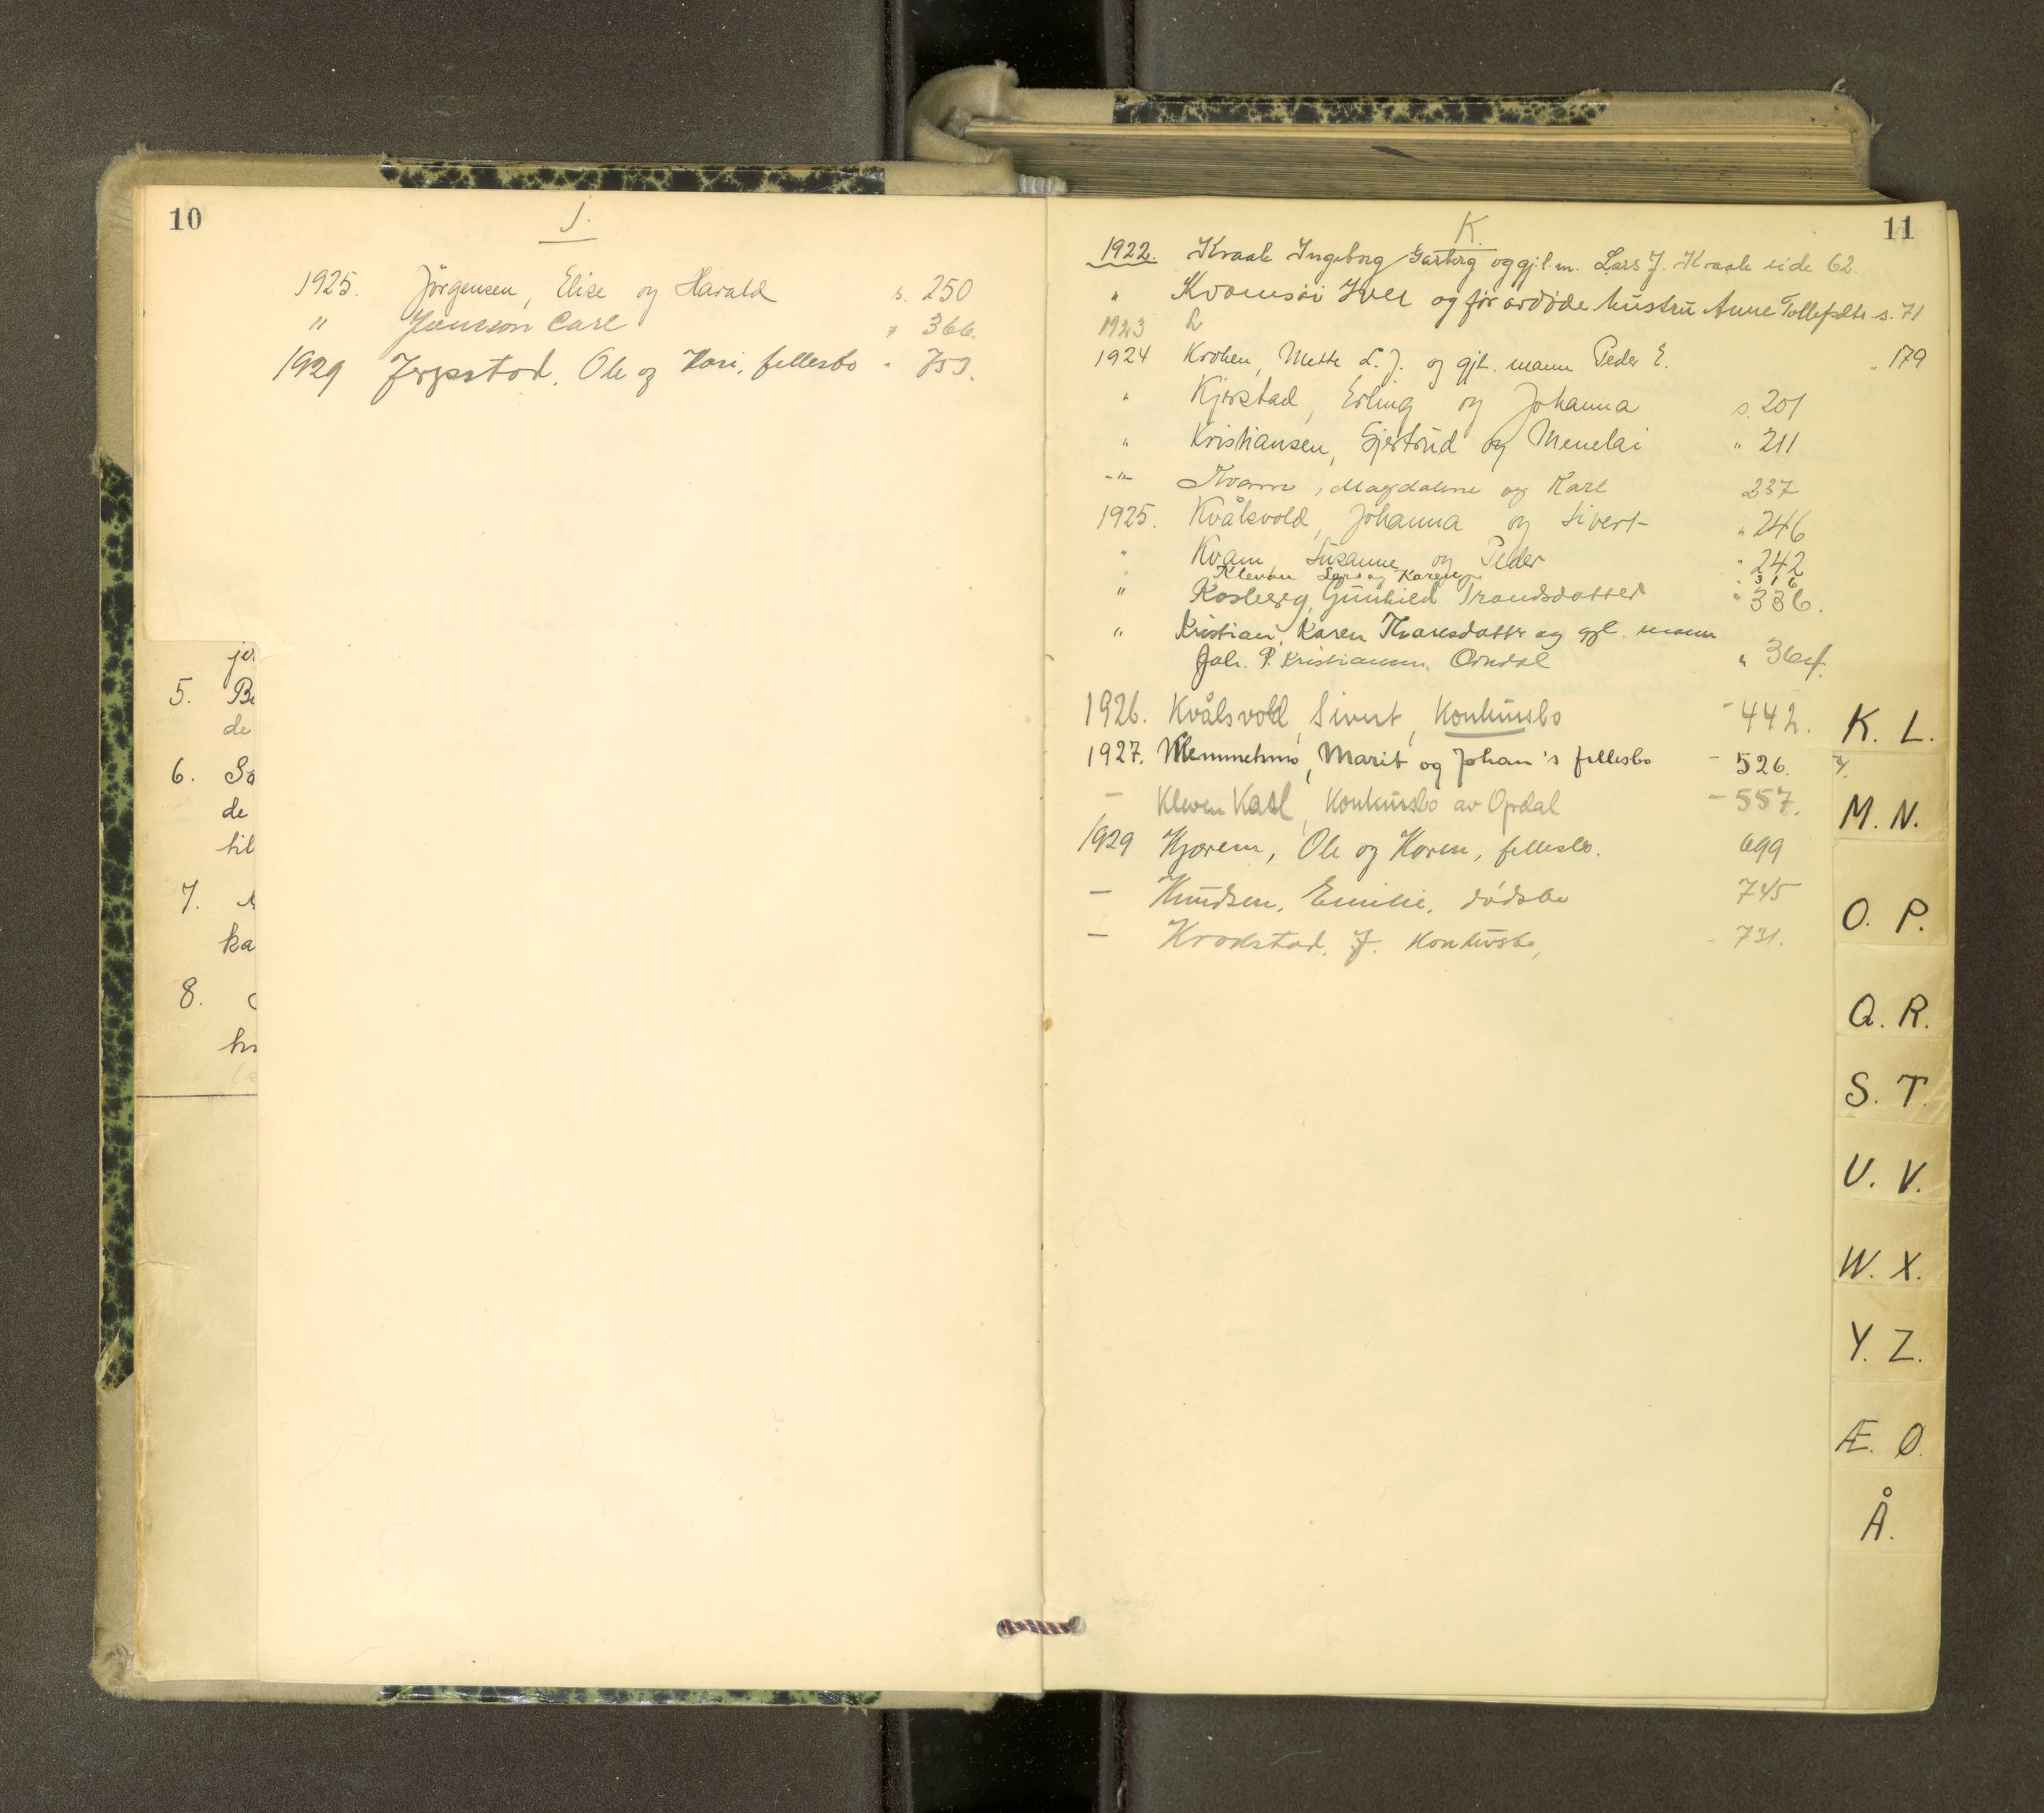 10
J.
1925. Jörgensen, Elise og Harald s. 250
" Jansson Carl " 366.
1929 Jerpstad, Ole og Kari, fellesbo " 753.
jer
5. Be
de
6. Sa
de
til
7.
ka
8.
11
K.
1922. Kraak Ingeborg Garberg og gjl. m. Lars J. Kraak side 62.
" Kvamsöi Iver og før avdøde hustru Anne Tollefsdtr s. 71
1923
1924 Kroken, Mette L. J. og gjl. mann Peder E. " 179
" Kjerstad, Erling og Johanna s. 201
" Kristiansen, Gjertrud og Menelai " 211
-"- Kvam, Magdalene og Karl 237
1925. Kvålsvold, Johanna og Sivert " 246
" Kvam Susanne og Peder " 242
" Kleven Lars og Karen " 316
" Kosberg, Gunhild Trondsdatter " 336.
" Kristian, Karen Ivarsdatter og gjl. mann
Joh. P. Kristiansen, Orndal " 364.
1926. Kvålsvold, Sivert, Konkursbo - 442.
1927. Klemmetsmo, Marit og Johan's fellesbo - 526.
- Kleven Karl, Konkursbo av Opdal - 557.
1929 Kjorem, Ole og Karen, fellesbo. 699
- Knudsen, Emilie, dödsbo 745
- Krokstad, J. Konkursbo, - 731.
K. L.
M. N.
O. P.
Q. R.
S. T.
U. V.
W. X.
Y. Z.
Æ. Ø.
Å.